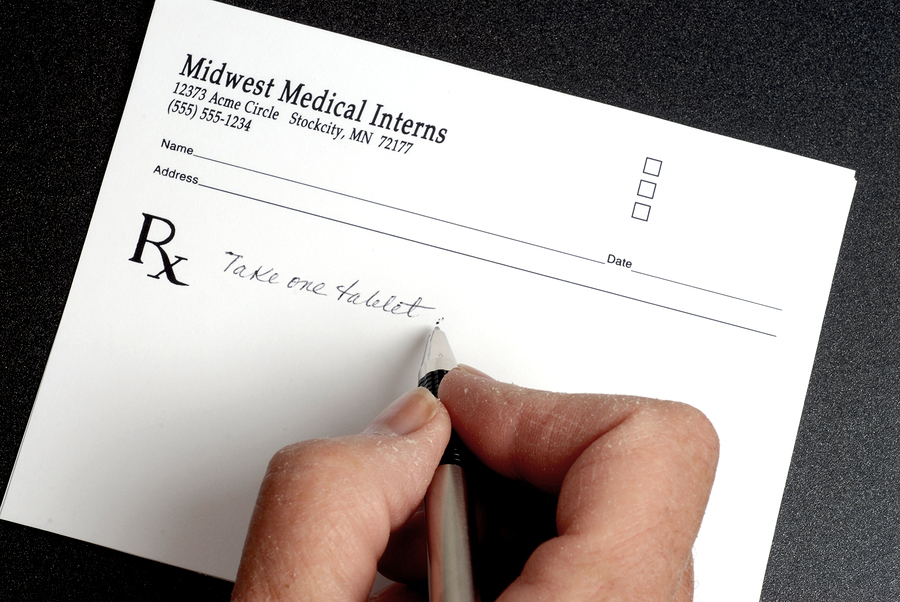 Midwest Medical Interns
12373 Acme Circle Stockcity, MN 72177
(555) 555-1234
Name
Date
Address
Rx
Take one tablet